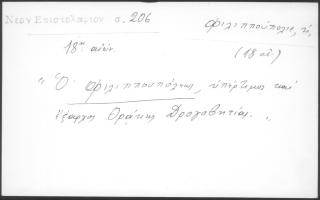 Νέον Επιστολάριον σ. 206
Φιλιππούπολις, ἡ,
18ου αἰών. (18 αἰ.)
"Ὁ Φιλιππουπόλεως, ὑπέρτιμος καὶ
ἔξαρχος Θρᾴκης Δραγοβητίας.„